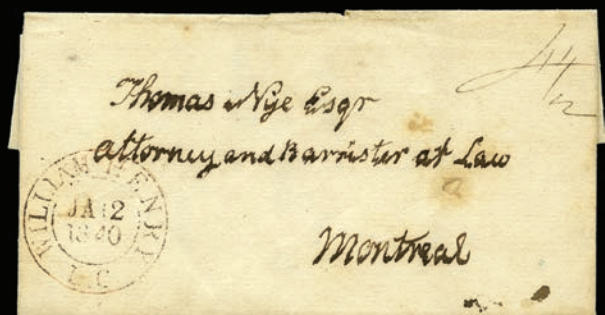 4½
Thomas Nye Esqr
Attorney and Barrister at Law
Montreal
WILLIAM HENRY
JA 12
1840
L.C